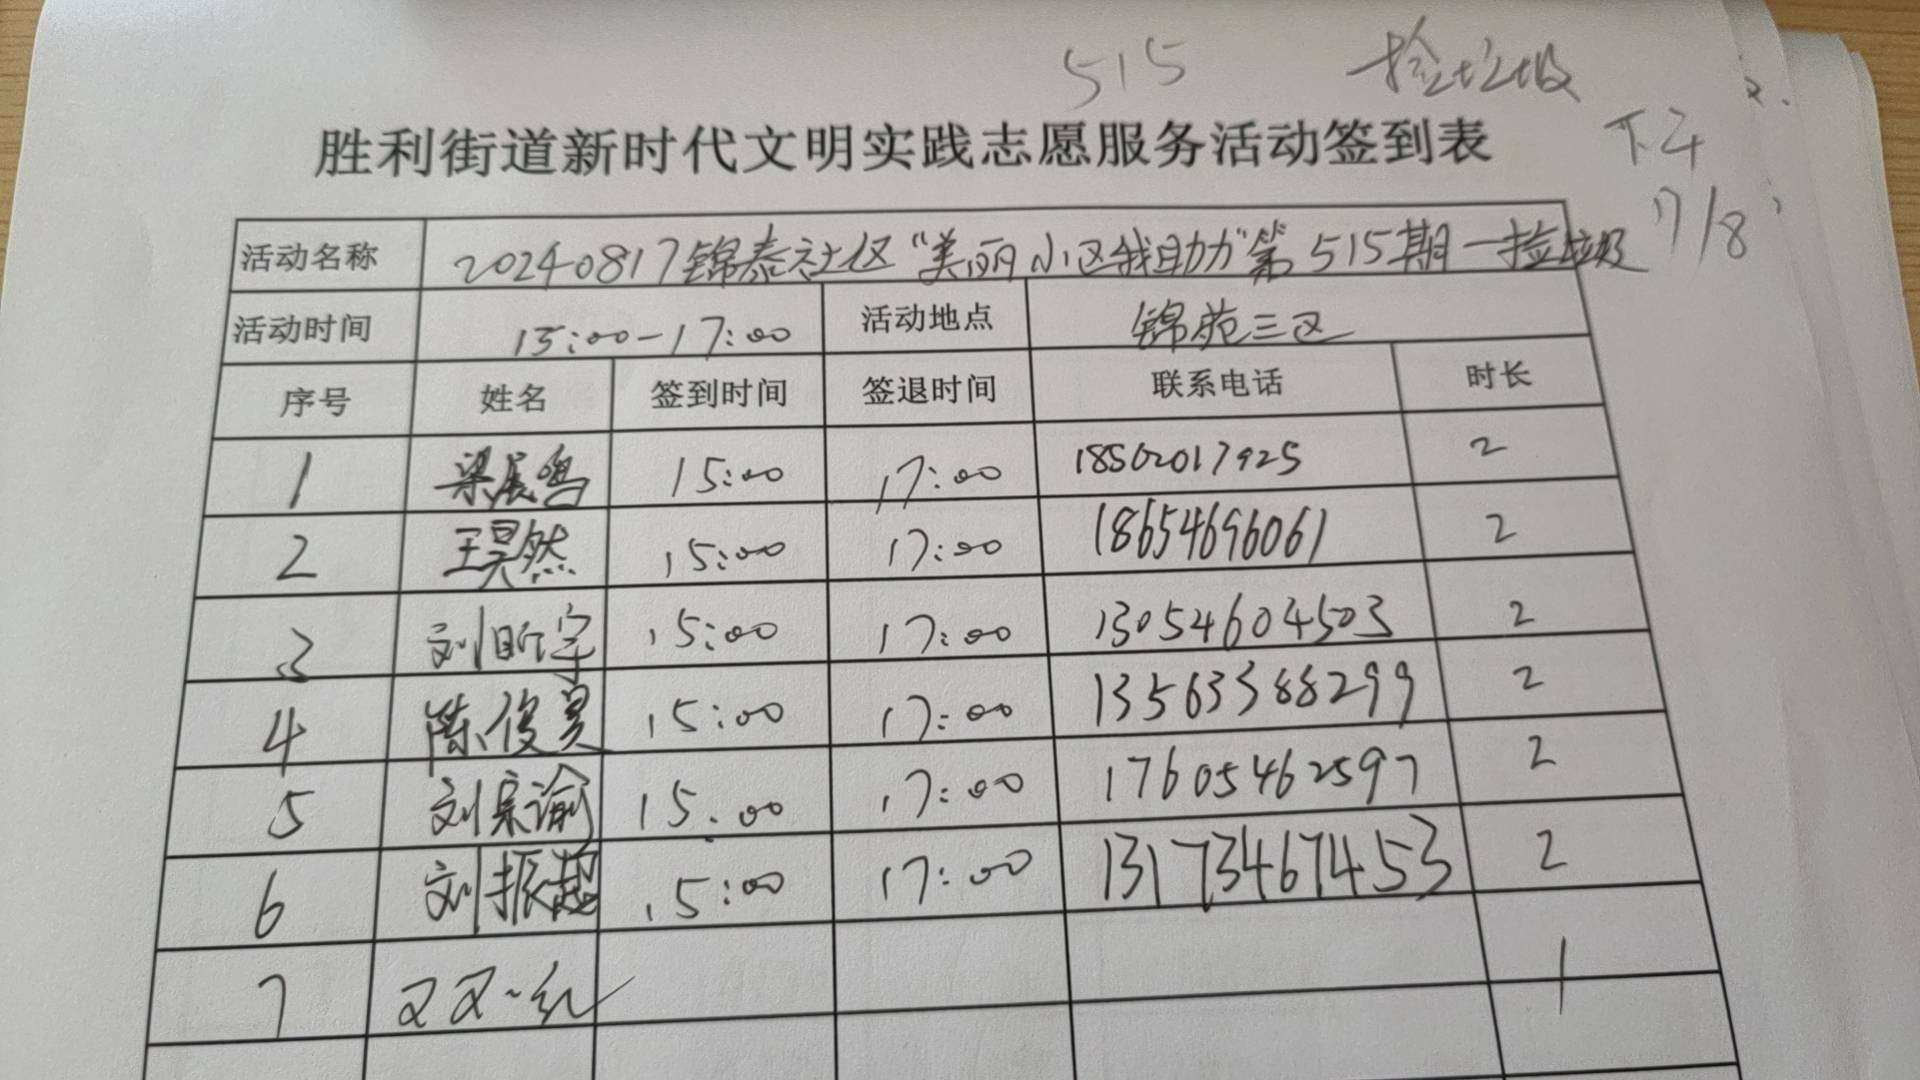 515 捡垃圾
胜利街道新时代文明实践志愿服务活动签到表
下午
17/8
活动名称 20240817锦泰社区“美丽小区我助力”第515期—捡垃圾
活动时间 15:00-17:00 活动地点 锦苑三区
序号 姓名 签到时间 签退时间 联系电话 时长
1 梁展鸣 15:00 17:00 18502017925 2
2 王昊然 15:00 17:00 18654696061 2
3 刘昕宇 15:00 17:00 13054604503 2
4 陈俊昊 15:00 17:00 13563388299 2
5 刘宗谕 15:00 17:00 17605462597 2
6 刘振超 15:00 17:00 13173467453 2
7 1